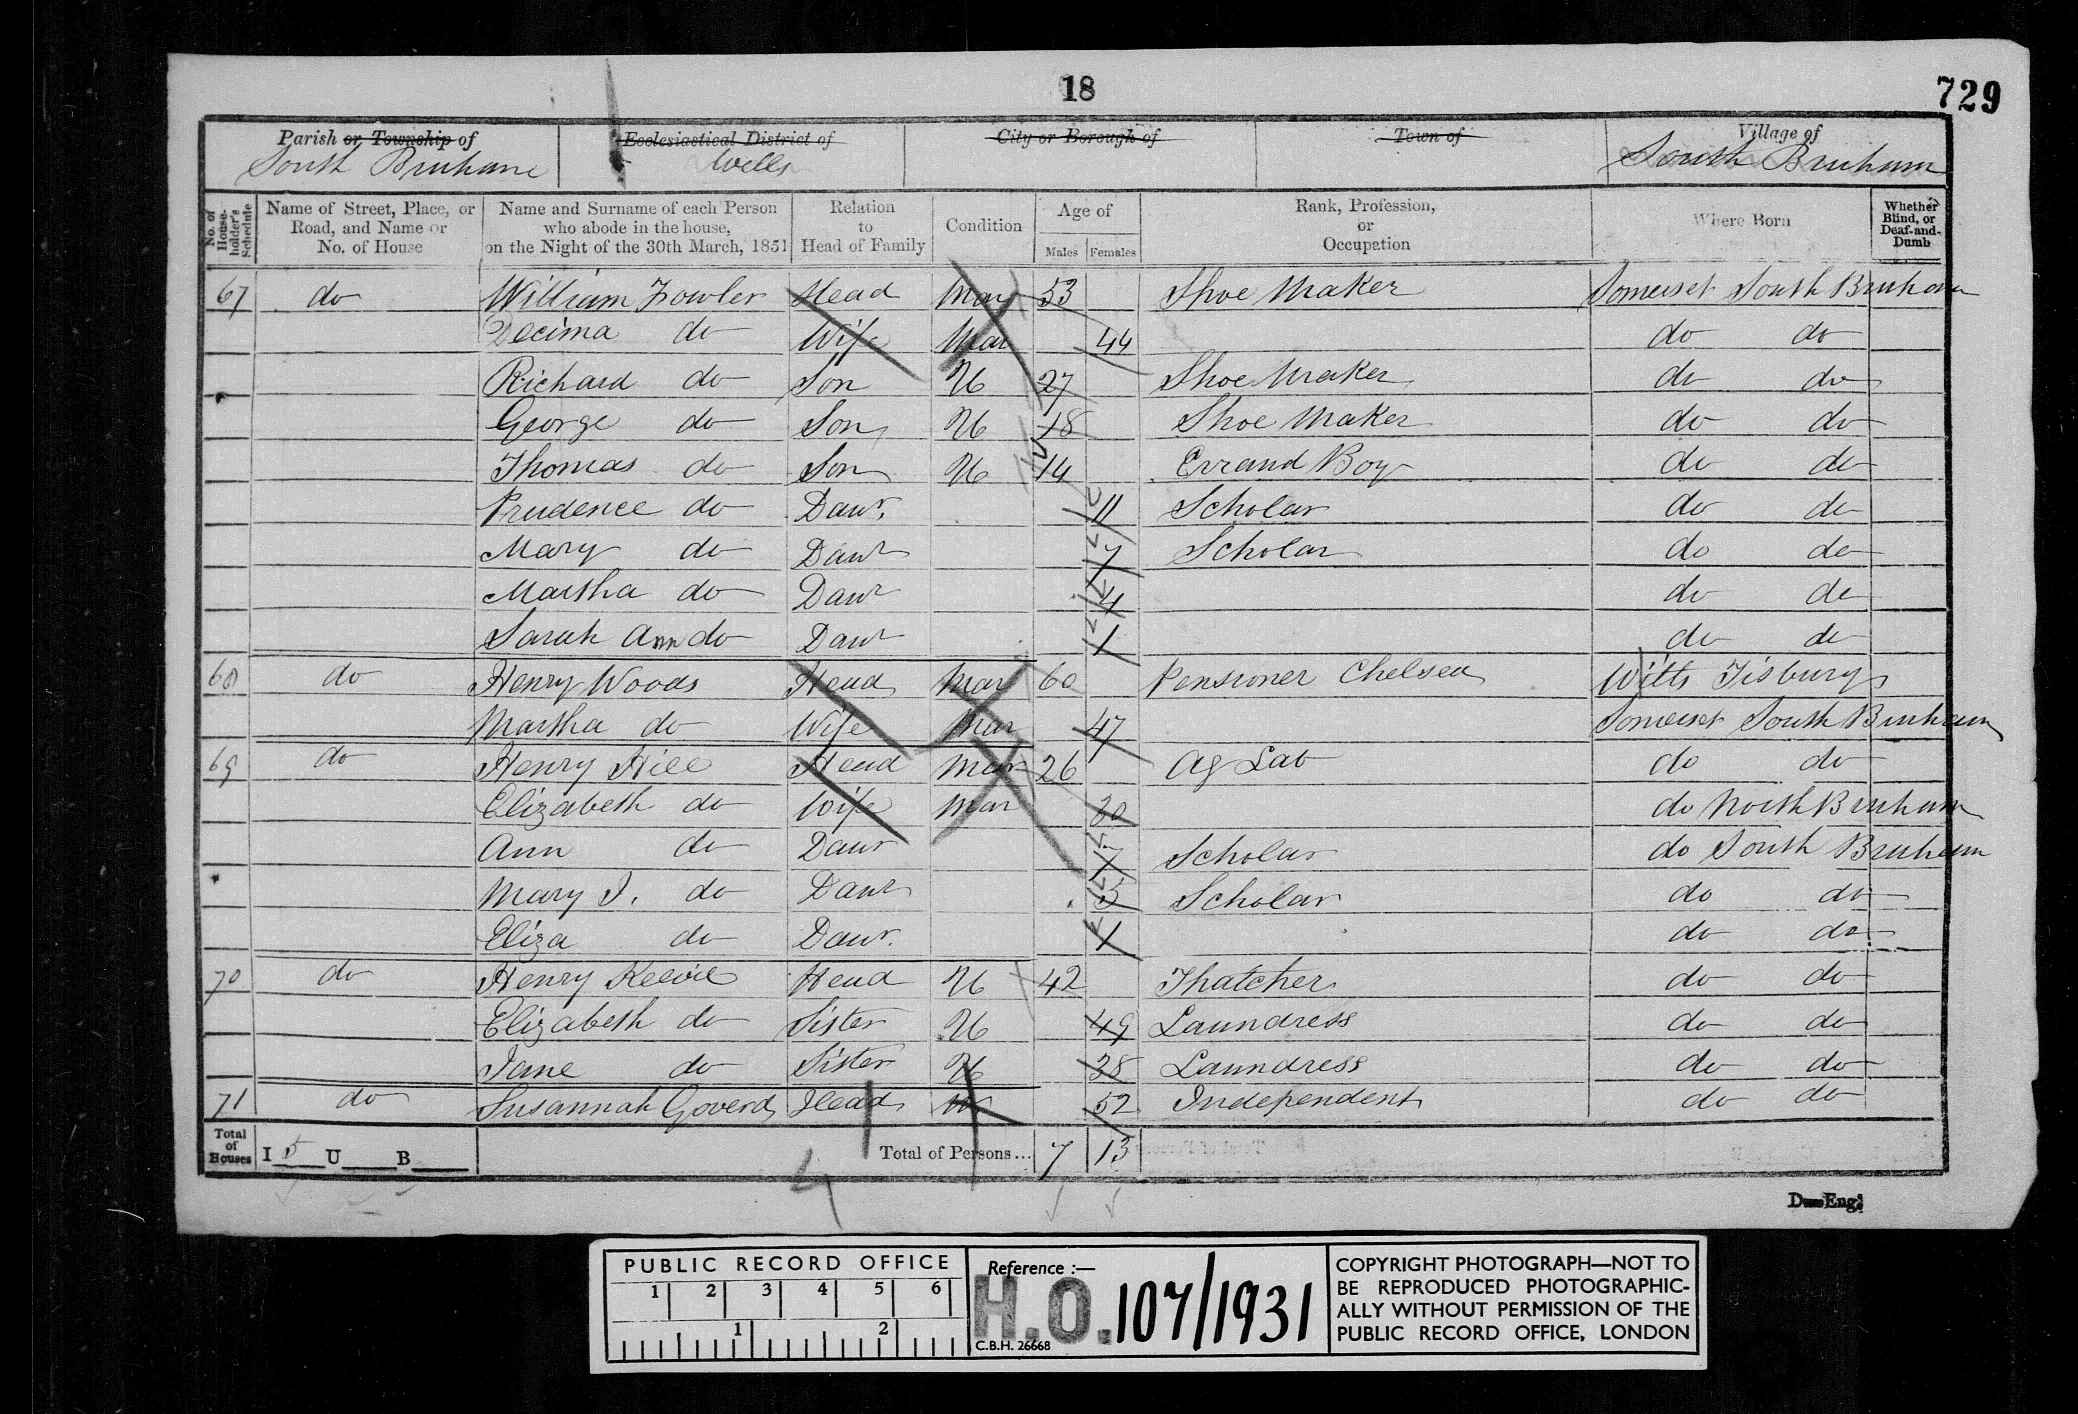 18
729
Parish or Township of
South Bruham
Ecclesiastical District of
Wells
City or Borough of
Town of
Village of
South Bruham
No. of House-holder's Schedule
Name of Street, Place, or Road, and Name or No. of House
Name and Surname of each Person who abode in the house, on the Night of the 30th March, 1851
Relation to Head of Family
Condition
Age of
Males Females
Rank, Profession, or Occupation
Where Born
Whether Blind, or Deaf-and-Dumb
67 do William Fowler Head Mar 53 Shoe Maker Somerset South Bruham
Decima do Wife Mar 44 do do
Richard do Son U 27 Shoe Maker do do
George do Son U 18 Shoe Maker do do
Thomas do Son U 14 Errand Boy do do
Prudence do Daur. 11 Scholar do do
Mary do Daur 7 Scholar do do
Martha do Daur 4 do do
Sarah Ann do Daur 1 do do
68 do Henry Woods Head Mar 60 Pensioner Chelsea Wilts Tisbury
Martha do Wife Mar 47 Somerset South Bruham
69 do Henry Hill Head Mar 26 Ag Lab do do
Elizabeth do Wife Mar 30 do North Bruham
Ann do Daur 7 Scholar do South Bruham
Mary J. do Daur 5 Scholar do do
Eliza do Daur. 1 do do
70 do Henry Head U 42 Thatcher do do
Elizabeth do Sister U 49 Laundress do do
Jane do Sister U 38 Laundress do do
71 do Susannah Goverd Head W 52 Independent do do
Total of Houses I 5 U B Total of Persons... 7 13
4
Eng.
PUBLIC RECORD OFFICE
1 2 3 4 5 6
1 2
Reference :—
H.O. 107/1931
C.B.H. 26668
COPYRIGHT PHOTOGRAPH—NOT TO
BE REPRODUCED PHOTOGRAPHIC-
ALLY WITHOUT PERMISSION OF THE
PUBLIC RECORD OFFICE, LONDON